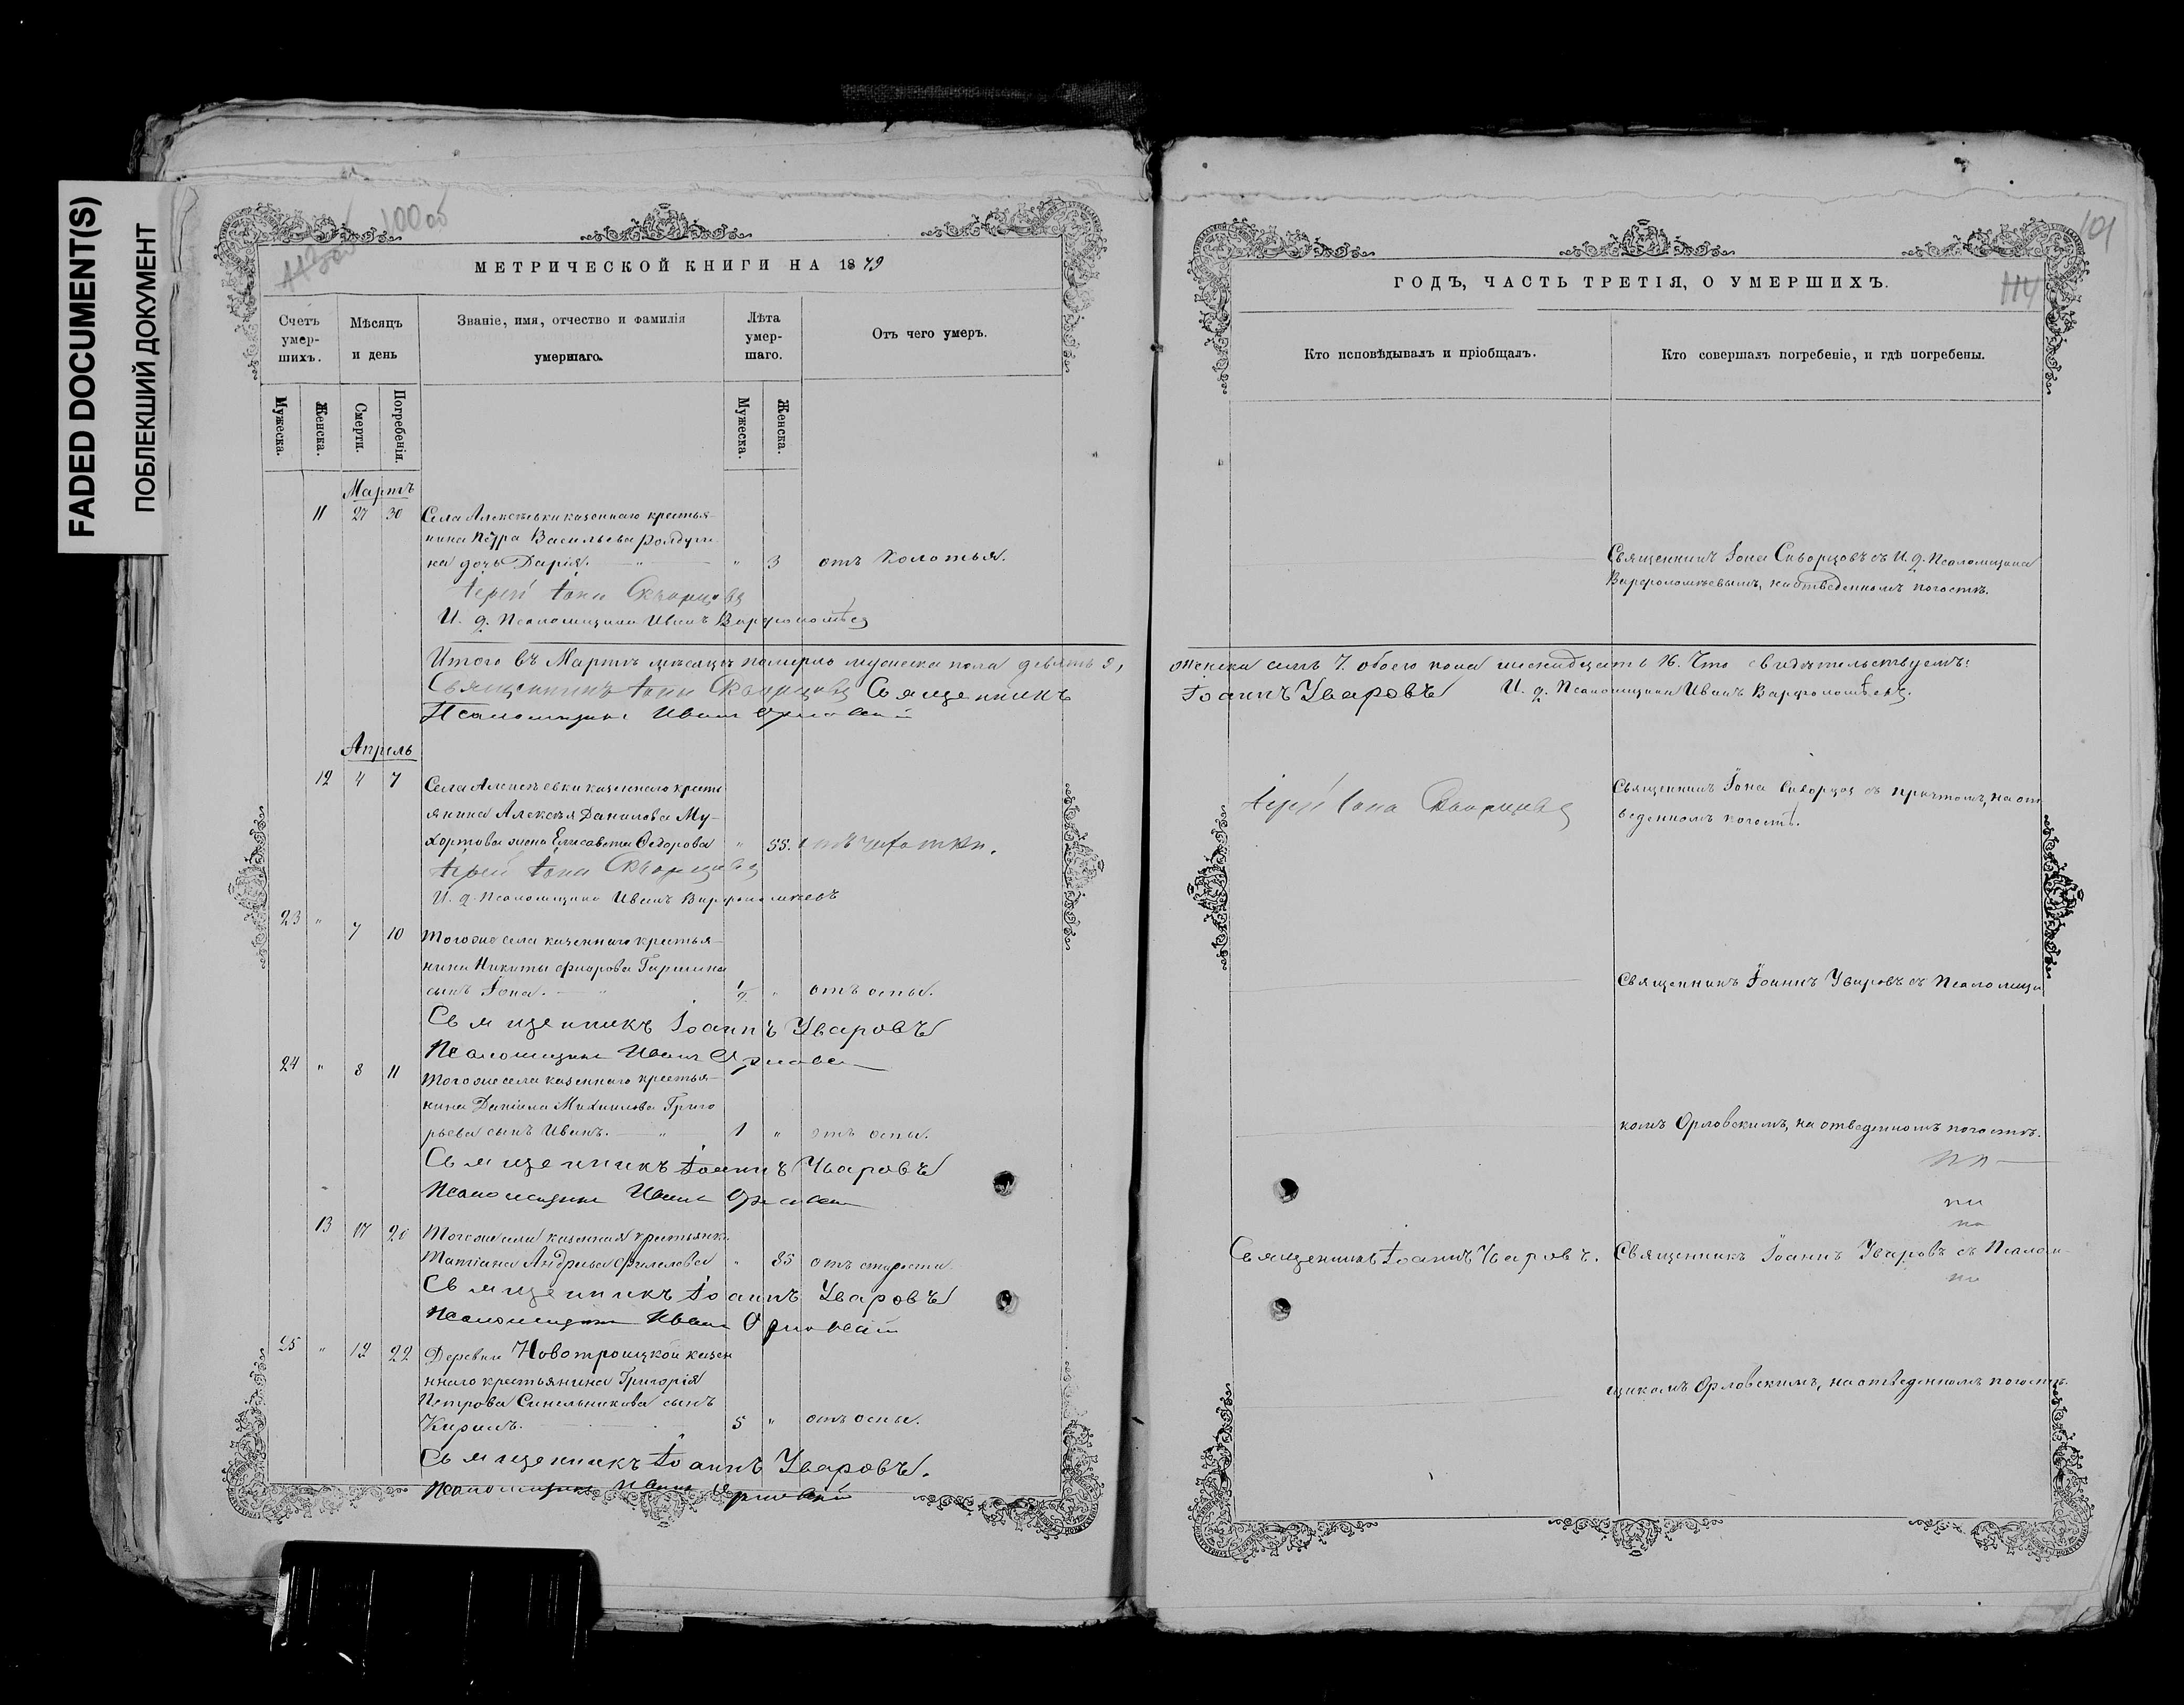 FADED DOCUMENT(S)
ПОБЛЕКШИЙ ДОКУМЕНТ
100 об
МЕТРИЧЕСКОЙ КНИГИ НА 1879
Счетъ умер-шихъ.
Мѣсяцъ и день
Званіе, имя, отчество и фамилія умершаго.
Лѣта умер-шаго.
Отъ чего умеръ.
Мужеска.
Женска.
Смерти.
Погребенія.
Мужеска.
Женска.
Мартъ
11 27 30 Села Алексѣевки казеннаго крестья-
нина Пётра Васильева
ка дочь Дарія. " 3 отъ колотья.
Іерей Іона Скворцовъ
И. д. Псаломщика Иванъ Варфоломѣевъ
Итого въ Мартѣ мѣсяцѣ померло мужеска пола девять 9,
Священникъ Іона Скворцовъ Священникъ
Псаломщикъ Иванъ Орловскій
Апрель
12 4 7 Села Алексѣевки казеннаго кресть
янина Алексѣя Данилова Му-
хортова жена Елисавета Ѳедорова " 55. отъ чахотки.
Іерей Іона Скворцовъ
И. д. Псаломщика Иванъ Варфоломѣевъ
23 " 7 10 Тогоже села казеннаго крестья-
нина Никиты
сынъ Іона. 1/2 " отъ оспы.
Священникъ Іоаннъ Уваровъ
Псаломщикъ Иванъ Орловскій
24 " 8 11 Тогоже села казеннаго крестья-
нина Даніила Михаилова Григо
рьева сынъ Иванъ. 1 " отъ оспы.
Священникъ Іоаннъ Уваровъ
Псаломщикъ Иванъ Орловскій
13 17 20 Тогоже села казенная крестьянка
Татіана Андреева " 85 отъ старости.
Священникъ Іоаннъ Уваровъ
Псаломщикъ Иванъ Орловскій
25 " 19 22 Деревни Новотроицкой казен
ннаго крестьянина Григорія
Петрова Синельникова сынъ
Кирилъ. 5 " отъ оспы.
Священникъ Іоаннъ Уваровъ.
Псаломщикъ Иванъ Орловскій
101
114
ГОДЪ, ЧАСТЬ ТРЕТІЯ, О УМЕРШИХЪ.
Кто исповѣдывалъ и пріобщалъ.
Кто совершалъ погребеніе, и гдѣ погребены.
Священникъ Іона Скворцовъ съ И. д. Псаломщика
Варфоломѣевымъ, на отведенномъ погостѣ.
женска семь 7. обоего пола шестнадцать 16. Что свидѣтельствуемъ:
Іоаннъ Уваровъ И. д. Псаломщика Иванъ Варфоломѣевъ.
Іерей Іона Скворцовъ
Священникъ Іона Скворцовъ съ причтомъ, на от
веденномъ погостѣ.
Священникъ Іоаннъ Уваровъ съ Псаломщи
комъ Орловскимъ, на отведенномъ погостѣ.
Священникъ Іоаннъ Уваровъ.
Священникъ Іоаннъ Уваровъ съ Псалом-
щикомъ Орловскимъ, на отведенномъ погостѣ.